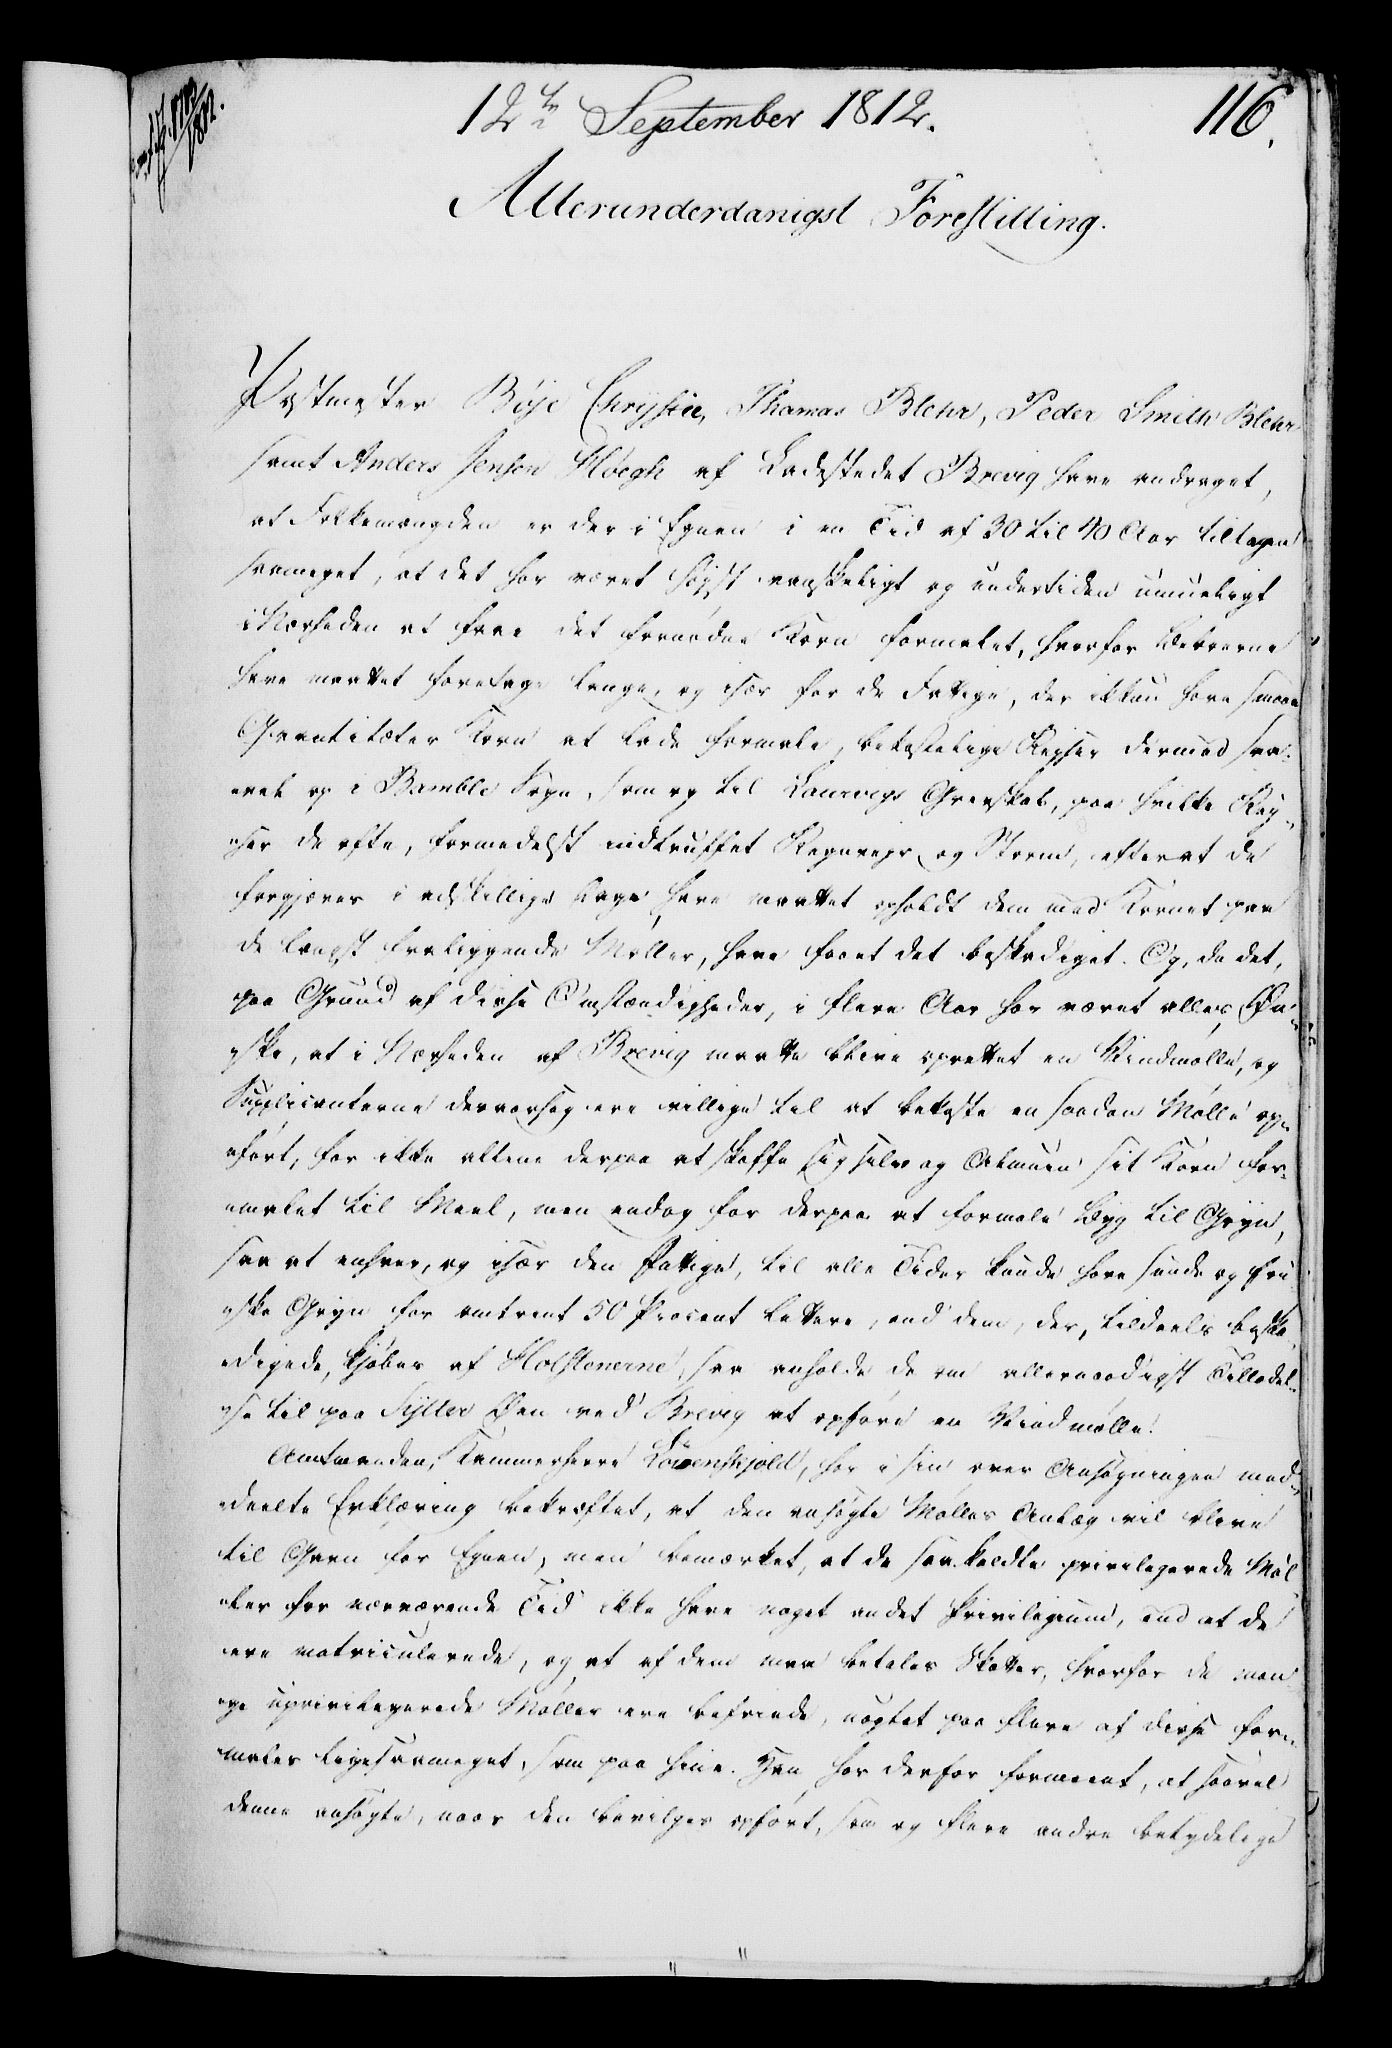 12te September 1812.
116.
Allerunderdanigst Forestilling.
Postmester Böje Chrystie, Thomas Blehr, Peder Smith Blehr
samt Anders Jensen Høegh af Ladestedet Brevig have andraget,
at Folkemængden er der i Egnen i en Tid af 30 til 40 Aar tiltagen
saameget, at det har været høist vanskeligt og undertiden umueligt
i Nærheden at faae det fornødne Korn formalet, hvorfor Beboerne
have maattet foretage lange, og især for de Fattige, der ikkun have smaae
Qvantiteter Korn at lade formale, bekostelige Reyser dermed saa-
vel op i Bamble Sogn, som og til Laurvigs Grevskab, paa hvilke Rey-
ser de ofte, formedelst indtruffet Regnveyr og Storm, efter at de
forgjæves i adskillige Dage have maattet opholdt dem med Kornet paa
de langst fraliggende Møller, have faaet det beskadiget. Og, da det,
paa Grund af disse Omstændigheder, i flere Aar har været alles Øn-
ske, at i Nærheden af Brevig maatte blive oprettet en Vindmølle, og
Supplicanterne derværsog ere villige til at bekoste en saadan Mølle op-
ført, for ikke allene derpaa at skaffe sig selv og Almuen sit Korn for-
malet til Meel, men endog for derpaa at formale Byg til Gryn,
saa at enhver, og især den Fattige, til alle Tider kunde have sunde og fri-
ske Gryn for omtrent 50 Procent lettere, end dem, der, tildeels beska-
digede, kjøbes af Holstenerne, saa anholde de om allernaadigst Tilladel-
se til paa Sylter Øen ved Brevig at opføre en Vindmølle.
Amtmanden, Kammerherre Løvenskjold, har i sin over Ansøgningen med-
deelte Erklæring bekræftet, at den ansøgte Mølles Anlæg vil blive
til Gavn for Egnen, men bemærket, at de saakaldte privilegerede Møl-
ler for nærværende Tid ikke have noget andet Privilegium, end at de
ere matriculerede, og at af dem maa betales Skatter, hvorfor de man-
ge uprivilegerede Møller ere befriede, uagtet paa flere af disse for-
males ligesaameget, som paa hine. Han har derfor formeent, at saavel
denne ansøgte, naar den bevilges opført, som og flere andre betydelige